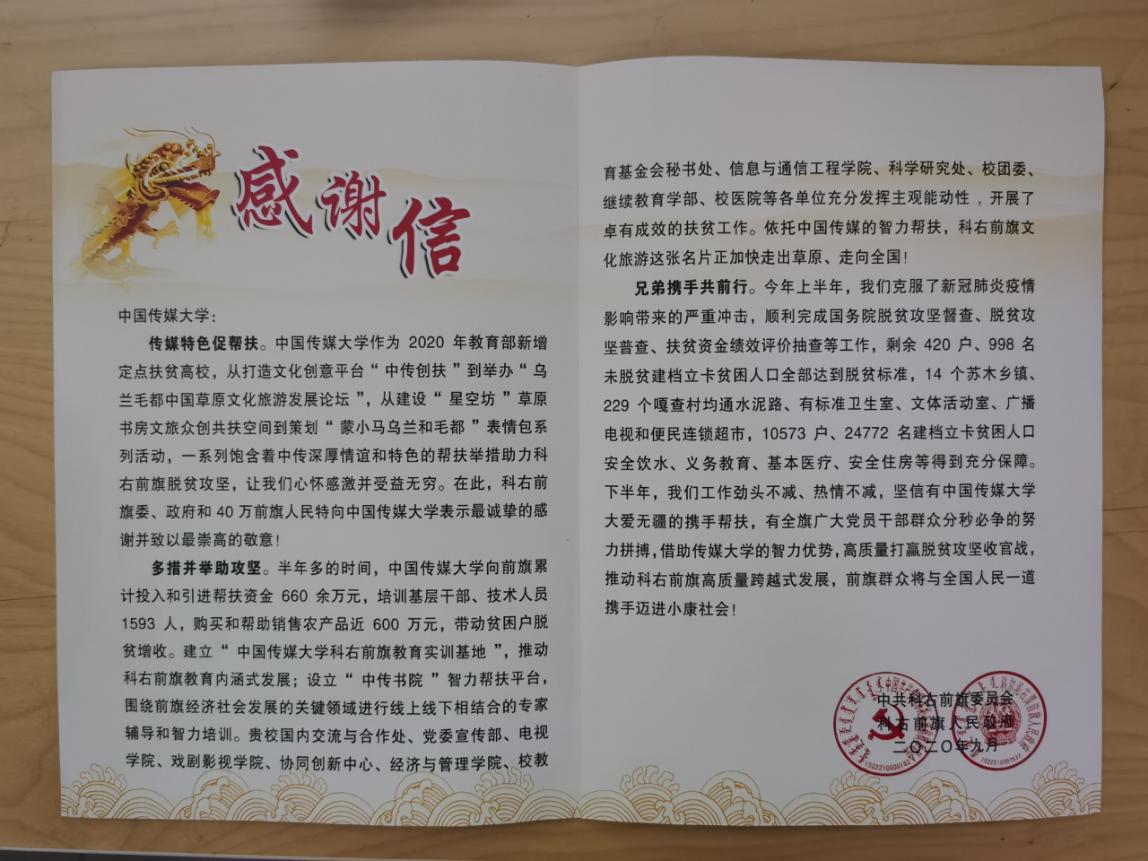 感谢信
中国传媒大学：
传媒特色促帮扶。中国传媒大学作为 2020 年教育部新增
定点扶贫高校，从打造文化创意平台“中传创扶”到举办“乌
兰毛都中国草原文化旅游发展论坛”，从建设“星空坊”草原
书房文旅众创共扶空间到策划“蒙小马乌兰和毛都”表情包系
列活动，一系列饱含着中传深厚情谊和特色的帮扶举措助力科
右前旗脱贫攻坚，让我们心怀感激并受益无穷。在此，科右前
旗委、政府和 40 万前旗人民特向中国传媒大学表示最诚挚的感
谢并致以最崇高的敬意！
多措并举助攻坚。半年多的时间，中国传媒大学向前旗累
计投入和引进帮扶资金 660 余万元，培训基层干部、技术人员
1593 人，购买和帮助销售农产品近 600 万元，带动贫困户脱
贫增收。建立“中国传媒大学科右前旗教育实训基地”，推动
科右前旗教育内涵式发展；设立“中传书院”智力帮扶平台，
围绕前旗经济社会发展的关键领域进行线上线下相结合的专家
辅导和智力培训。贵校国内交流与合作处、党委宣传部、电视
学院、戏剧影视学院、协同创新中心、经济与管理学院、校教
育基金会秘书处、信息与通信工程学院、科学研究处、校团委、
继续教育学部、校医院等各单位充分发挥主观能动性，开展了
卓有成效的扶贫工作。依托中国传媒的智力帮扶，科右前旗文
化旅游这张名片正加快走出草原、走向全国！
兄弟携手共前行。今年上半年，我们克服了新冠肺炎疫情
影响带来的严重冲击，顺利完成国务院脱贫攻坚督查、脱贫攻
坚普查、扶贫资金绩效评价抽查等工作，剩余 420 户、998 名
未脱贫建档立卡贫困人口全部达到脱贫标准，14 个苏木乡镇、
229 个嘎查村均通水泥路、有标准卫生室、文体活动室、广播
电视和便民连锁超市，10573 户、24772 名建档立卡贫困人口
安全饮水、义务教育、基本医疗、安全住房等得到充分保障。
下半年，我们工作劲头不减、热情不减，坚信有中国传媒大学
大爱无疆的携手帮扶，有全旗广大党员干部群众分秒必争的努
力拼搏，借助传媒大学的智力优势，高质量打赢脱贫攻坚收官战，
推动科右前旗高质量跨越式发展，前旗群众将与全国人民一道
携手迈进小康社会！
中共科右前旗委员会
科右前旗人民政府
二〇二〇年九月